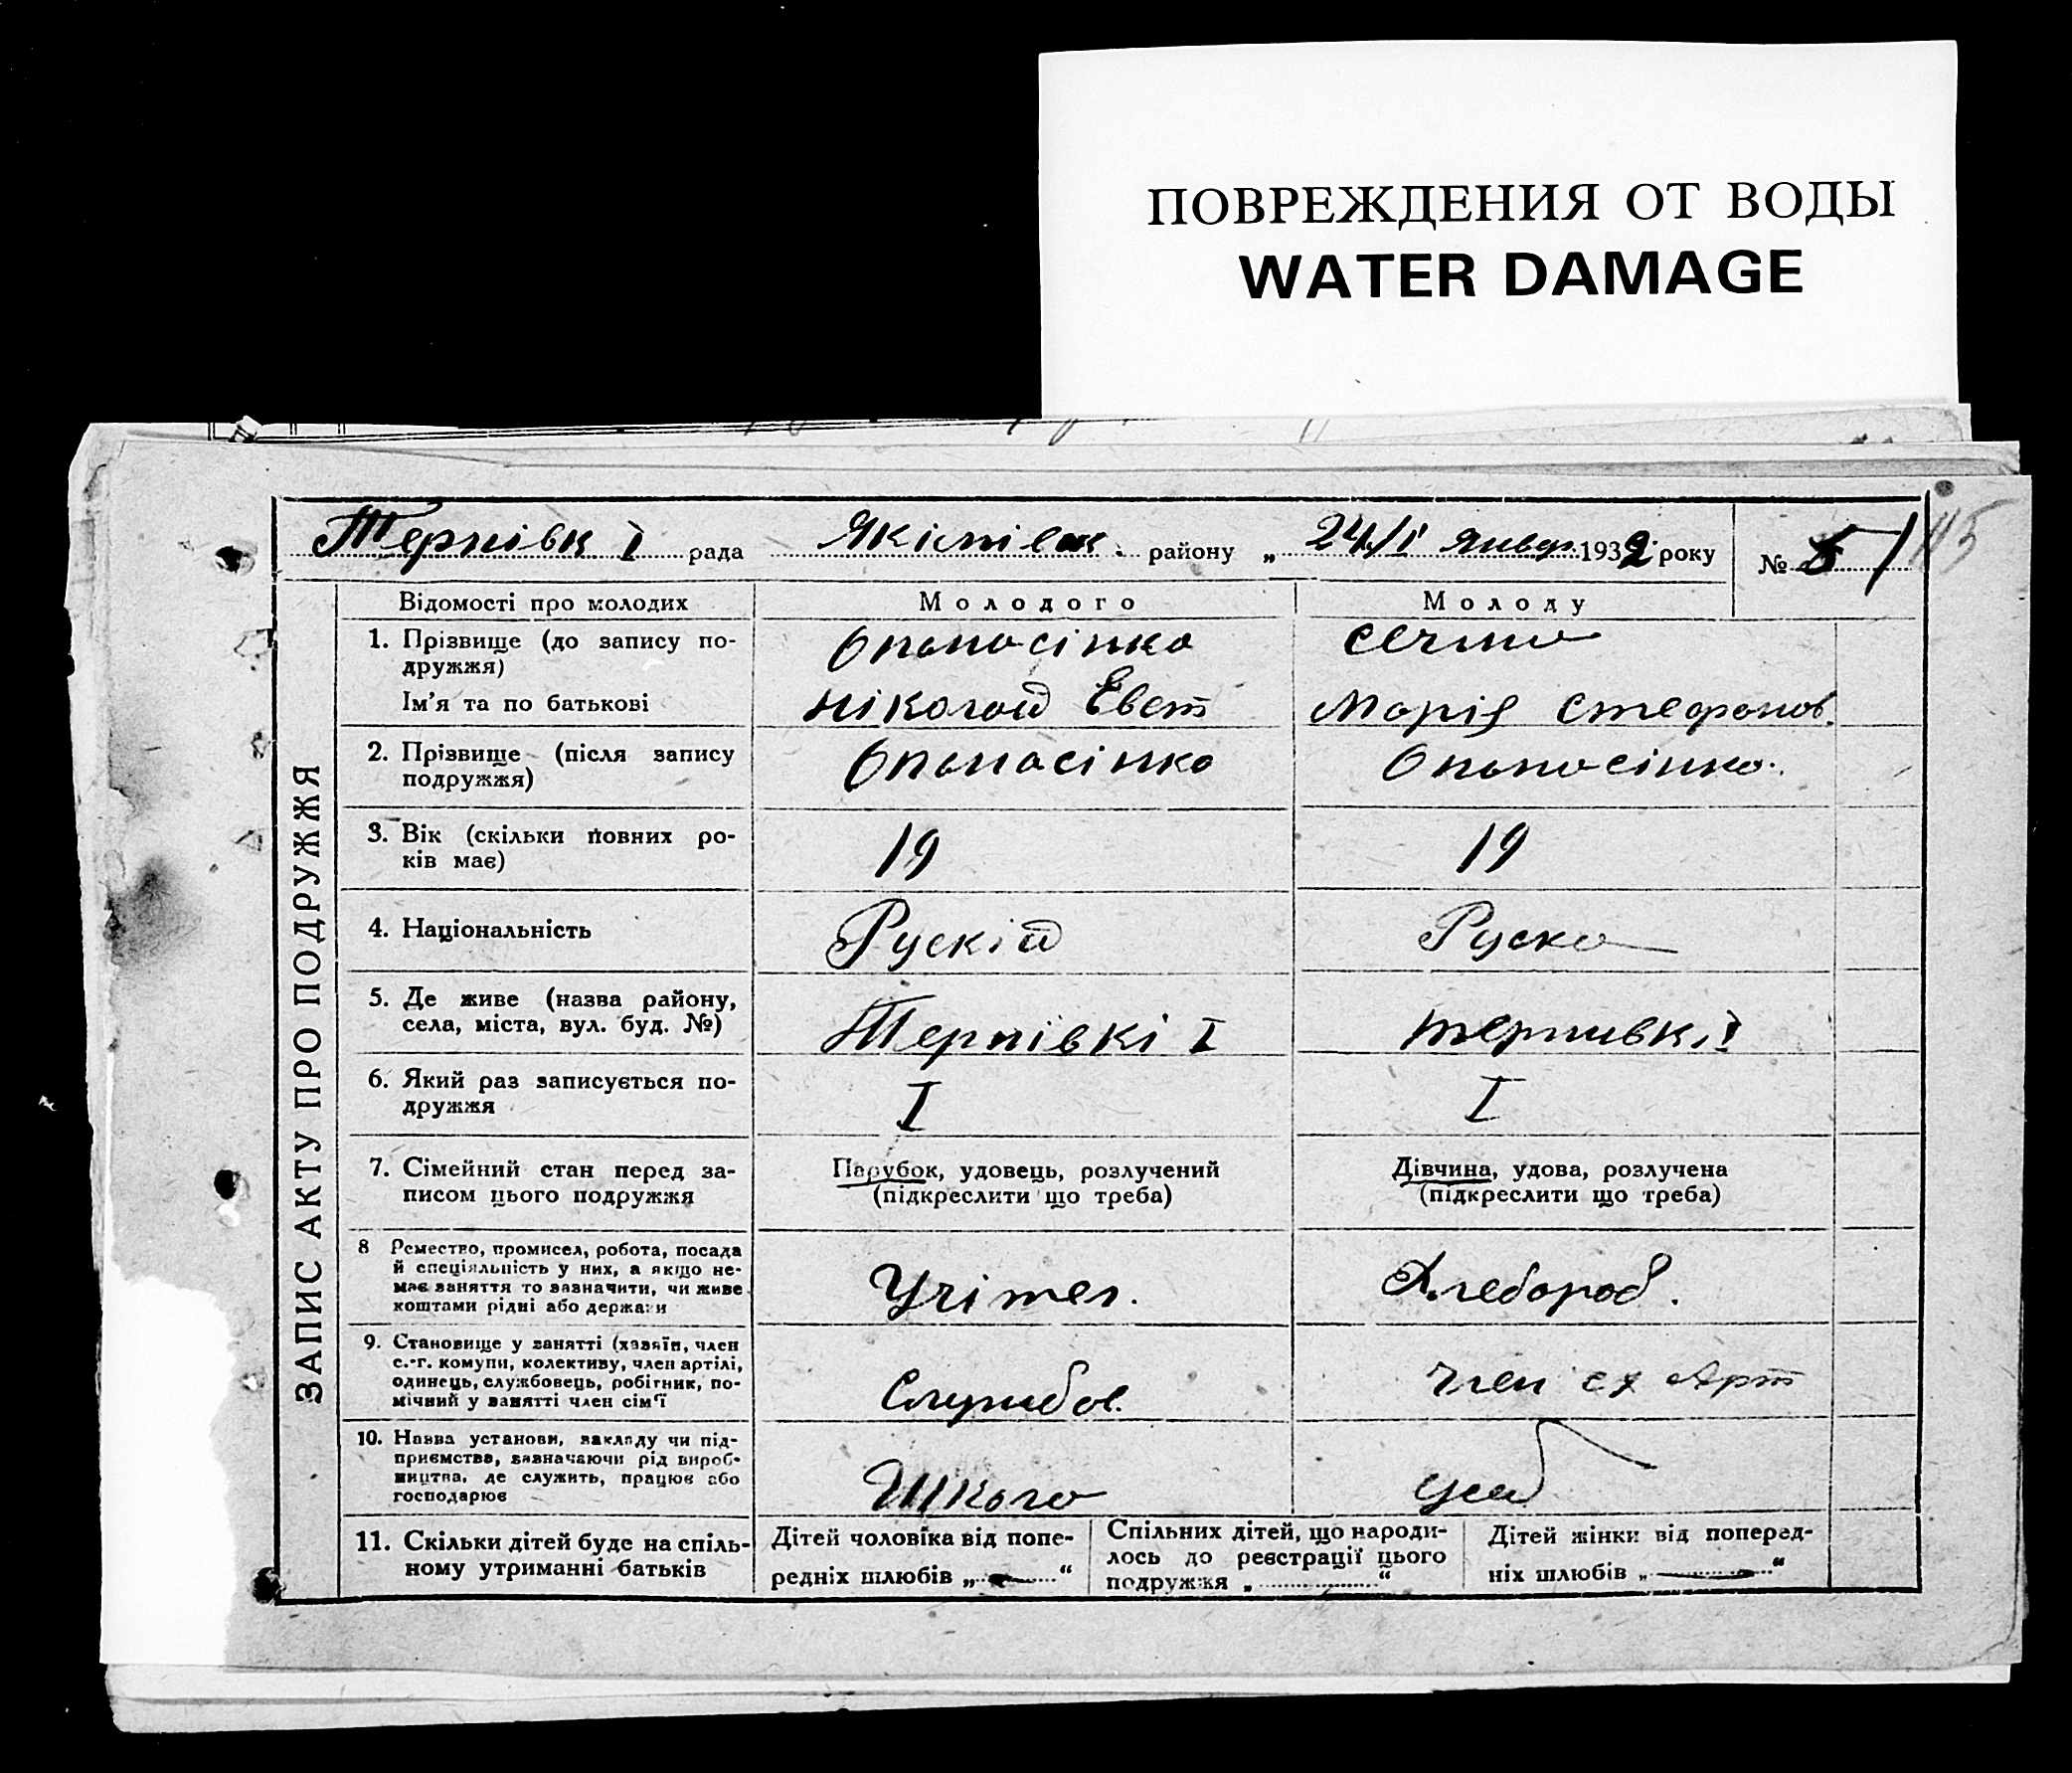 ПОВРЕЖДЕНИЯ ОТ ВОДЫ
WATER DAMAGE
Терпівк I рада Якімівск. району „ 24/I Январ. 1932 року № 5 115
ЗАПИС АКТУ ПРО ПОДРУЖЖЯ
Відомості про молодих Молодого Молоду
1. Прізвище (до запису по-
дружжя) Опанасінко
Ім'я та по батькові Ніколай Евст Марія Стефанов.
2. Прізвище (після запису
подружжя) Опанасінко Опанасінко.
3. Вік (скільки повних ро-
ків має) 19 19
4. Національність Рускій Руска
5. Де живе (назва району,
села, міста, вул. буд. №) Терпівкі I терпивк. I
6. Який раз записується по-
дружжя I I
7. Сімейний стан перед за-
писом цього подружжя
Парубок, удовець, розлучений
(підкреслити що треба)
Дівчина, удова, розлучена
(підкреслити що треба)
8 Ремество, промисел, робота, посада
й спеціяльність у них, а якщо не-
має заняття то зазначити, чи живе
коштами рідні або держави
Учітел. Хлебороб.
9. Становище у занятті (хазяїн, член
с.-г. комуни, колективу, член артілі,
одинець, службовець, робітник, по-
мічний у занятті член сім'ї
Службов. Член сх Арт
10. Назва установи, закладу чи під-
приємства, зазначаючи рід вироб-
ництва, де служить, працює або
господарює
Школа
11. Скільки дітей буде на спіль-
ному утриманні батьків
Дітей чоловіка від попе-
редніх шлюбів „ — “
Спільних дітей, що народи-
лось до реєстрації цього
подружжя „ “
Дітей жінки від поперед-
ніх шлюбів „ — “